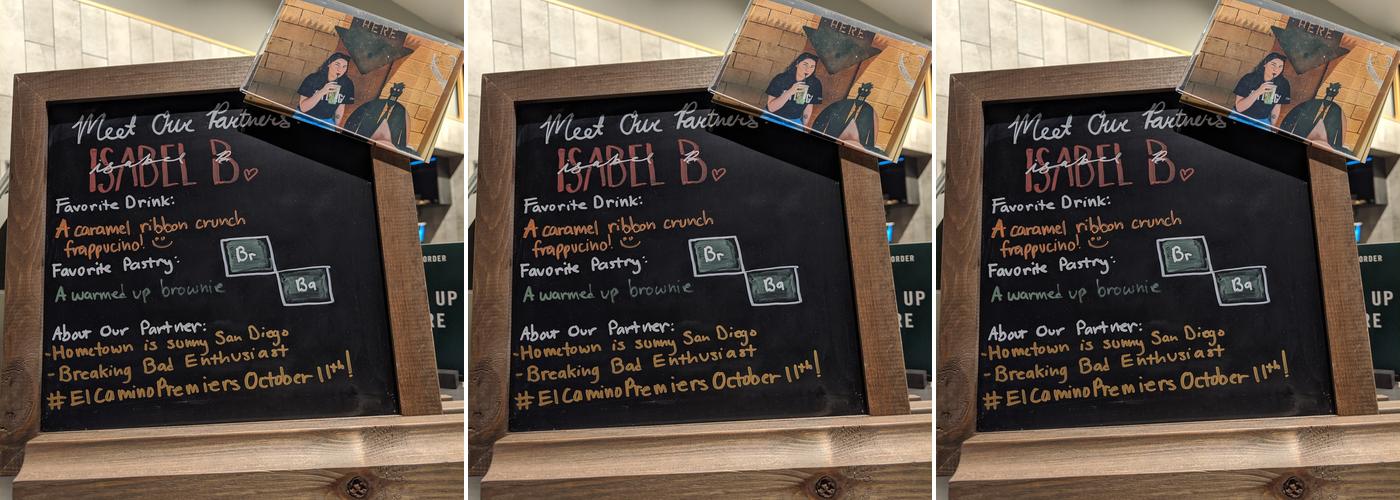 HERE
Meet Our Partners
ISABEL B.
isabel B
Favorite Drink:
A caramel ribbon crunch
frappucino!
Favorite Pastry:
A warmed up brownie
Br
Ba
About Our Partner:
-Hometown is sunny San Diego
-Breaking Bad Enthusiast
#ElCaminoPremiers October 11th!
ORDER
UP
RE
HERE
Meet Our Partners
ISABEL B.
isabel B
Favorite Drink:
A caramel ribbon crunch
frappucino!
Favorite Pastry:
A warmed up brownie
Br
Ba
About Our Partner:
-Hometown is sunny San Diego
-Breaking Bad Enthusiast
#ElCaminoPremiers October 11th!
ORDER
UP
RE
HERE
Meet Our Partners
ISABEL B.
isabel B
Favorite Drink:
A caramel ribbon crunch
frappucino!
Favorite Pastry:
A warmed up brownie
Br
Ba
About Our Partner:
-Hometown is sunny San Diego
-Breaking Bad Enthusiast
#ElCaminoPremiers October 11th!
ORDER
UP
RE